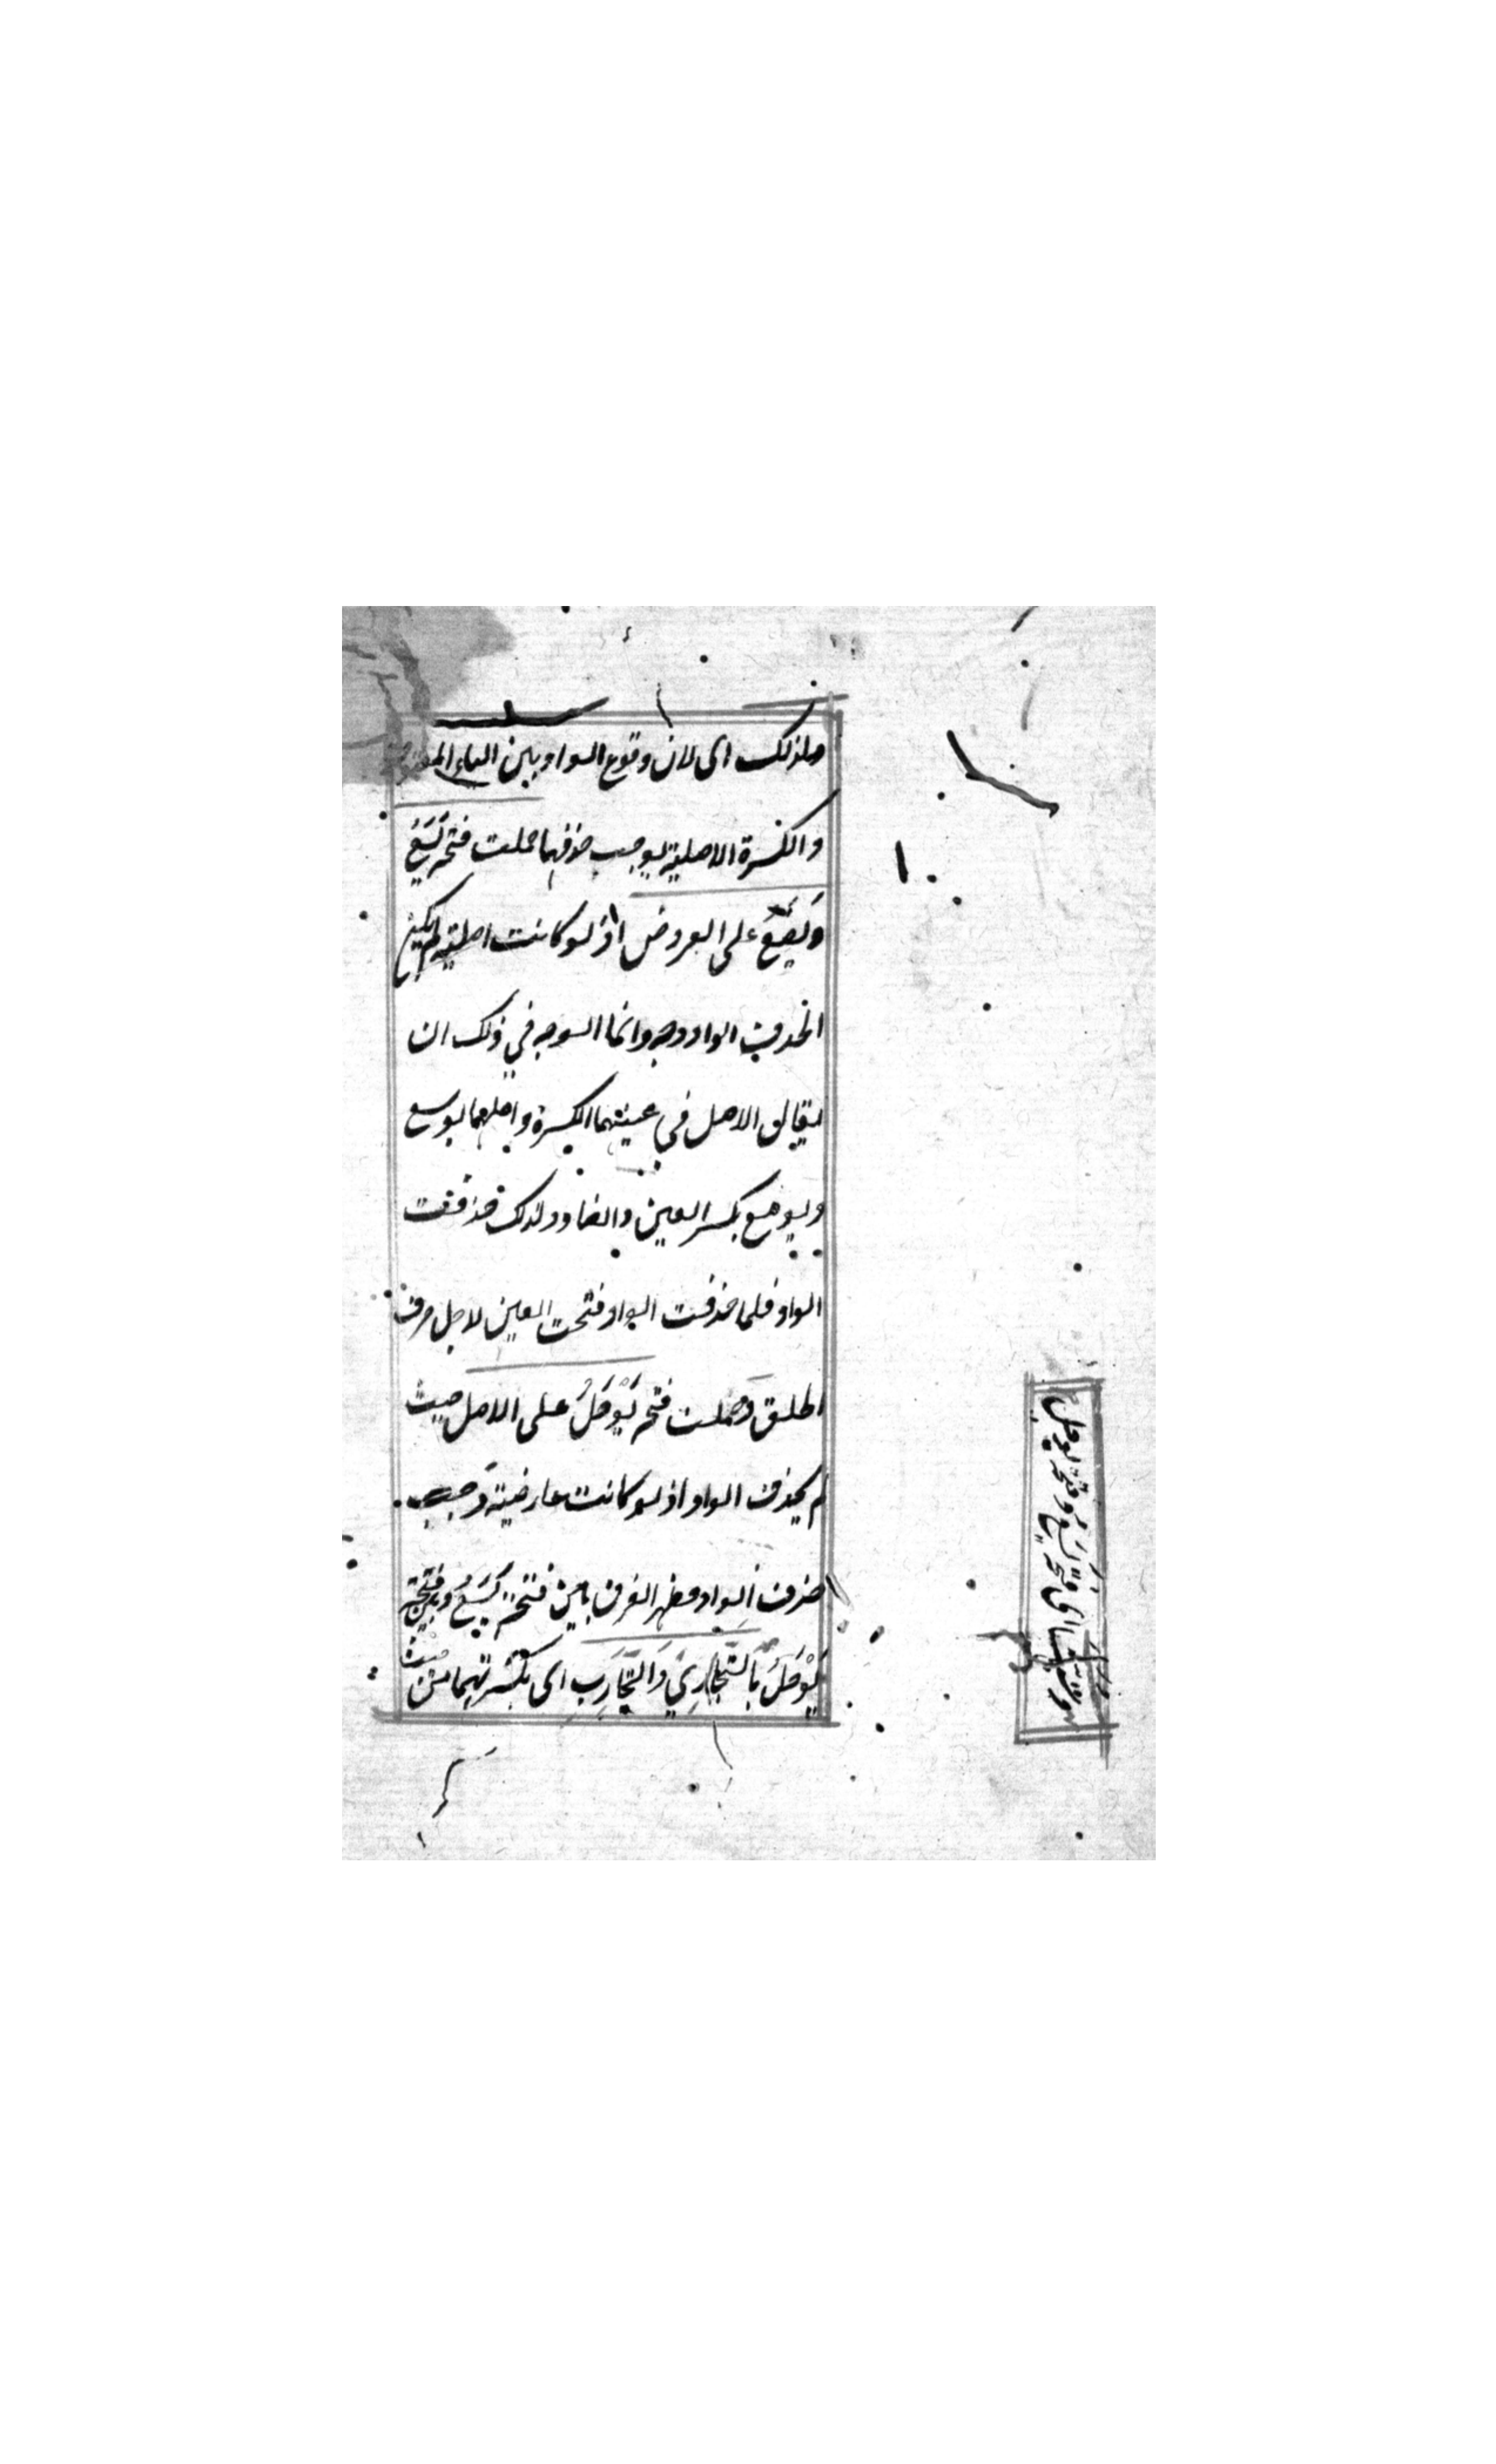 ولذلك اى لان وقوع الواو بين الياء
والكسرة الاصلية يوجب حذفها حملت فتحة يَسَعُ
وَيَضَعُ على العروض اذ لو كانت اصلية لم يكن
لحذف الواو وجه وانما الوجه في ذلك ان
يقال الاصل في عينهما الكسرة واصلهما يوسع
ويوضع بكسر العين والضاد ولذلك حذفت
الواو فلما حذفت الواو فتحت العين لاجل حرف
الحلق وَحملت فتحة يَوْجَلُ على الاصل حيث
لم يحذف الواو اذ لو كانت عارضية وَجب
حذف الواو فظهر الفرق بين فتحة يَسَعُ وبين فتحة
يَوْجَلُ بَالتَّجَارِيْ وَالتَّجَارِب اى بكسرتهما من حيث